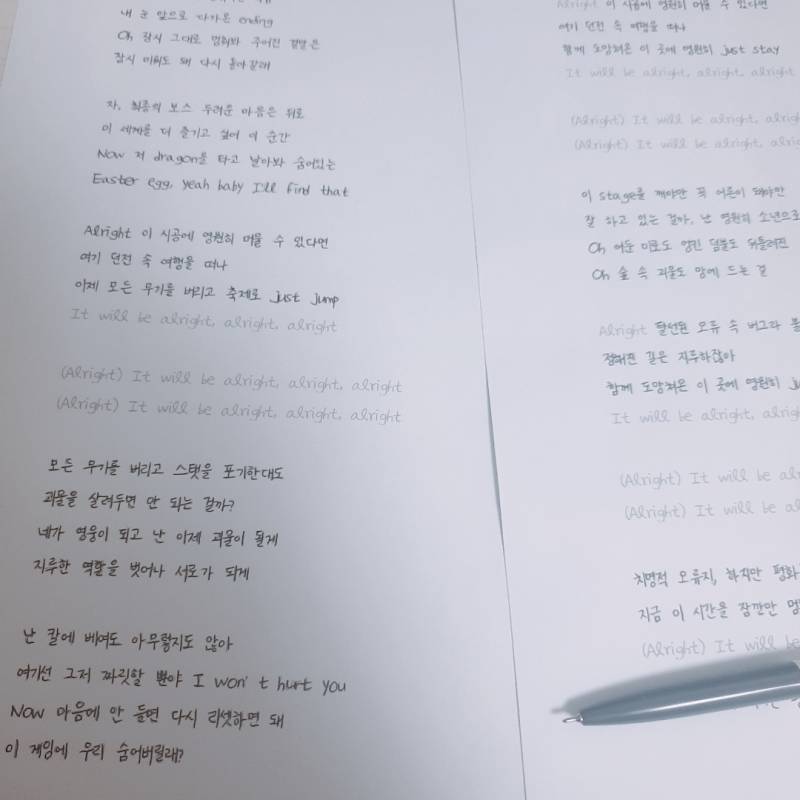 내 눈 앞으로 다가온 ending
Oh 잠시 그대로 멈춰봐 주어진 결말은
잠시 미뤄도 돼 다시 돌아갈래
자, 최종의 보스 두려운 마음은 뒤로
이 세계를 더 즐기고 싶어 이 순간
Now 저 dragon을 타고 날아봐 숨어있는
Easter egg, yeah baby I'll find that
Alright 이 시공에 영원히 머물 수 있다면
여기 던전 속 여행을 떠나
이제 모든 무기를 버리고 축제로 just jump
It will be alright, alright, alright
(Alright) It will be alright, alright, alright
(Alright) It will be alright, alright, alright
모든 무기를 버리고 스탯을 포기한대도
괴물을 살려두면 안 되는 걸까?
네가 영웅이 되고 난 이제 괴물이 될게
지루한 역할을 벗어나 서로가 되게
난 칼에 베여도 아무렇지도 않아
여기선 그저 짜릿할 뿐야 I won't hurt you
Now 마음에 안 들면 다시 리셋하면 돼
이 게임에 우리 숨어버릴래?
Alright 이 시공에 영원히 머물 수 있다면
여기 던전 속 여행을 떠나
함께 도망쳐온 이 곳에 영원히 just stay
It will be alright, alright, alright
(Alright) It will be alright, alright
(Alright) It will be alright, alright
이 stage를 깨야만 꼭 어른이 돼야만
잘 하고 있는 걸까, 난 영원히 소년으로
Oh 어둔 미로도 엉킨 덤불도 뒤틀려진
Oh 숲 속 괴물도 맘에 드는 걸
Alright 탈선된 오류 속 버그라 불
정해진 길은 지루하잖아
함께 도망쳐온 이 곳에 영원히
It will be alright, alright
(Alright) It will be
(Alright) It will be
치명적 오류지, 하지만 평화
지금 이 시간을 잠깐만 멈
(Alright) It will be